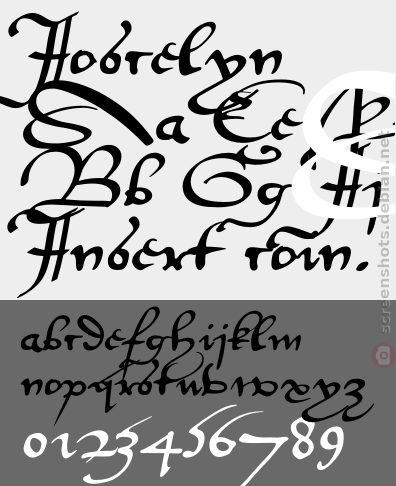 Joscelyn
Aa Ee
Bb Gg
Insert coin.
abcdefghijklm
nopqrstuvwxyz
0123456789
screenshots.debian.net